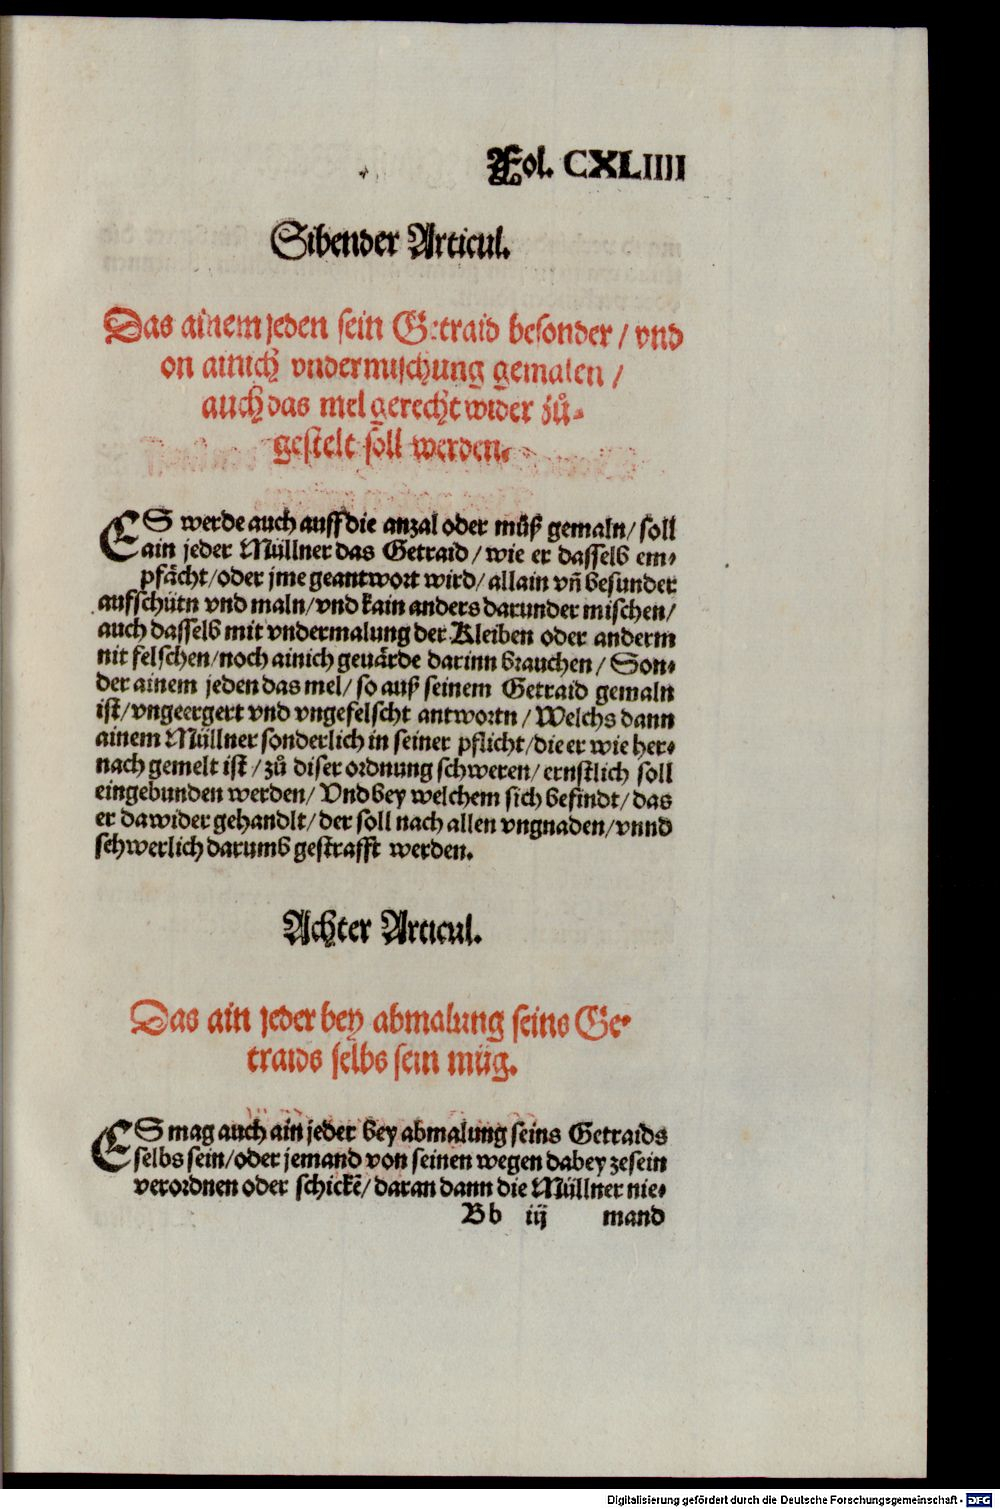 Fol. CXLIIII
Sibender Articul.
Das ainem jeden sein Getraid besonder / vnd
on ainich vndermischung gemalen /
auch das mel gerecht wider zů⸗
gestelt soll werden.
ES werde auch auff die anzal oder müß gemaln / soll
ain jeder Müllner das Getraid / wie er dasselb em⸗
pfächt / oder jme geantwort wird / allain vñ besunder
aufschütn vnd maln / vnd kain anders darunder mischen /
auch dasselb mit vndermalung der Kleiben oder anderm
nit felschen / noch ainich geuärde darinn brauchen / Son⸗
der ainem jeden das mel / so auß seinem Getraid gemaln
ist / vngeergert vnd vngefelscht antwortn / Welchs dann
ainem Müllner sonderlich in seiner pflicht / die er wie her⸗
nach gemelt ist / zů diser ordnung schweren / ernstlich soll
eingebunden werden / Vnd bey welchem sich befindt / das
er dawider gehandlt / der soll nach allen vngnaden / vnnd
schwerlich darumb gestrafft werden.
Achter Articul.
Das ain jeder bey abmalung seins Ge⸗
traids selbs sein müg.
ES mag auch ain jeder bey abmalung seins Getraids
selbs sein / oder jemand von seinen wegen dabey zesein
verordnen oder schickē / daran dann die Müllner nie⸗
Bb iij mand
Digitalisierung gefördert durch die Deutsche Forschungsgemeinschaft - DFG